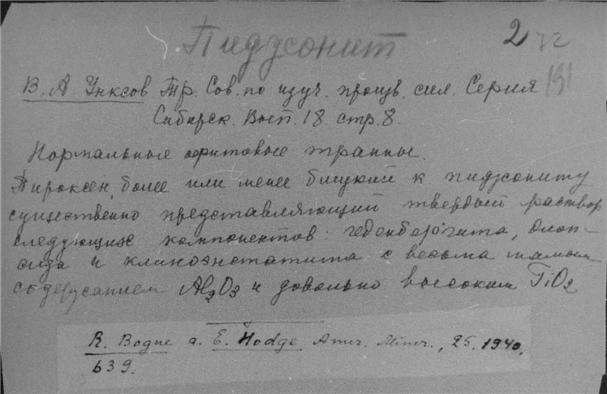 Пиджонит 2
В. А. Унксов Тр. Сов. по изуч. произв. сил. Серия 191
Сибирск. Вып. 18 стр. 8.
Нормальные офитовые траппы.
Пироксен, более или менее близкий к пиджониту
существенно представляющий твердый раствор
следующих компонентов: геденбергита, диоп-
сида и клиноэнстатита с весьма малым
содержанием Al2O3 и довольно высоким TiO2
R. Bogue a. E. Hodge Amer. Miner., 25. 1940,
639.